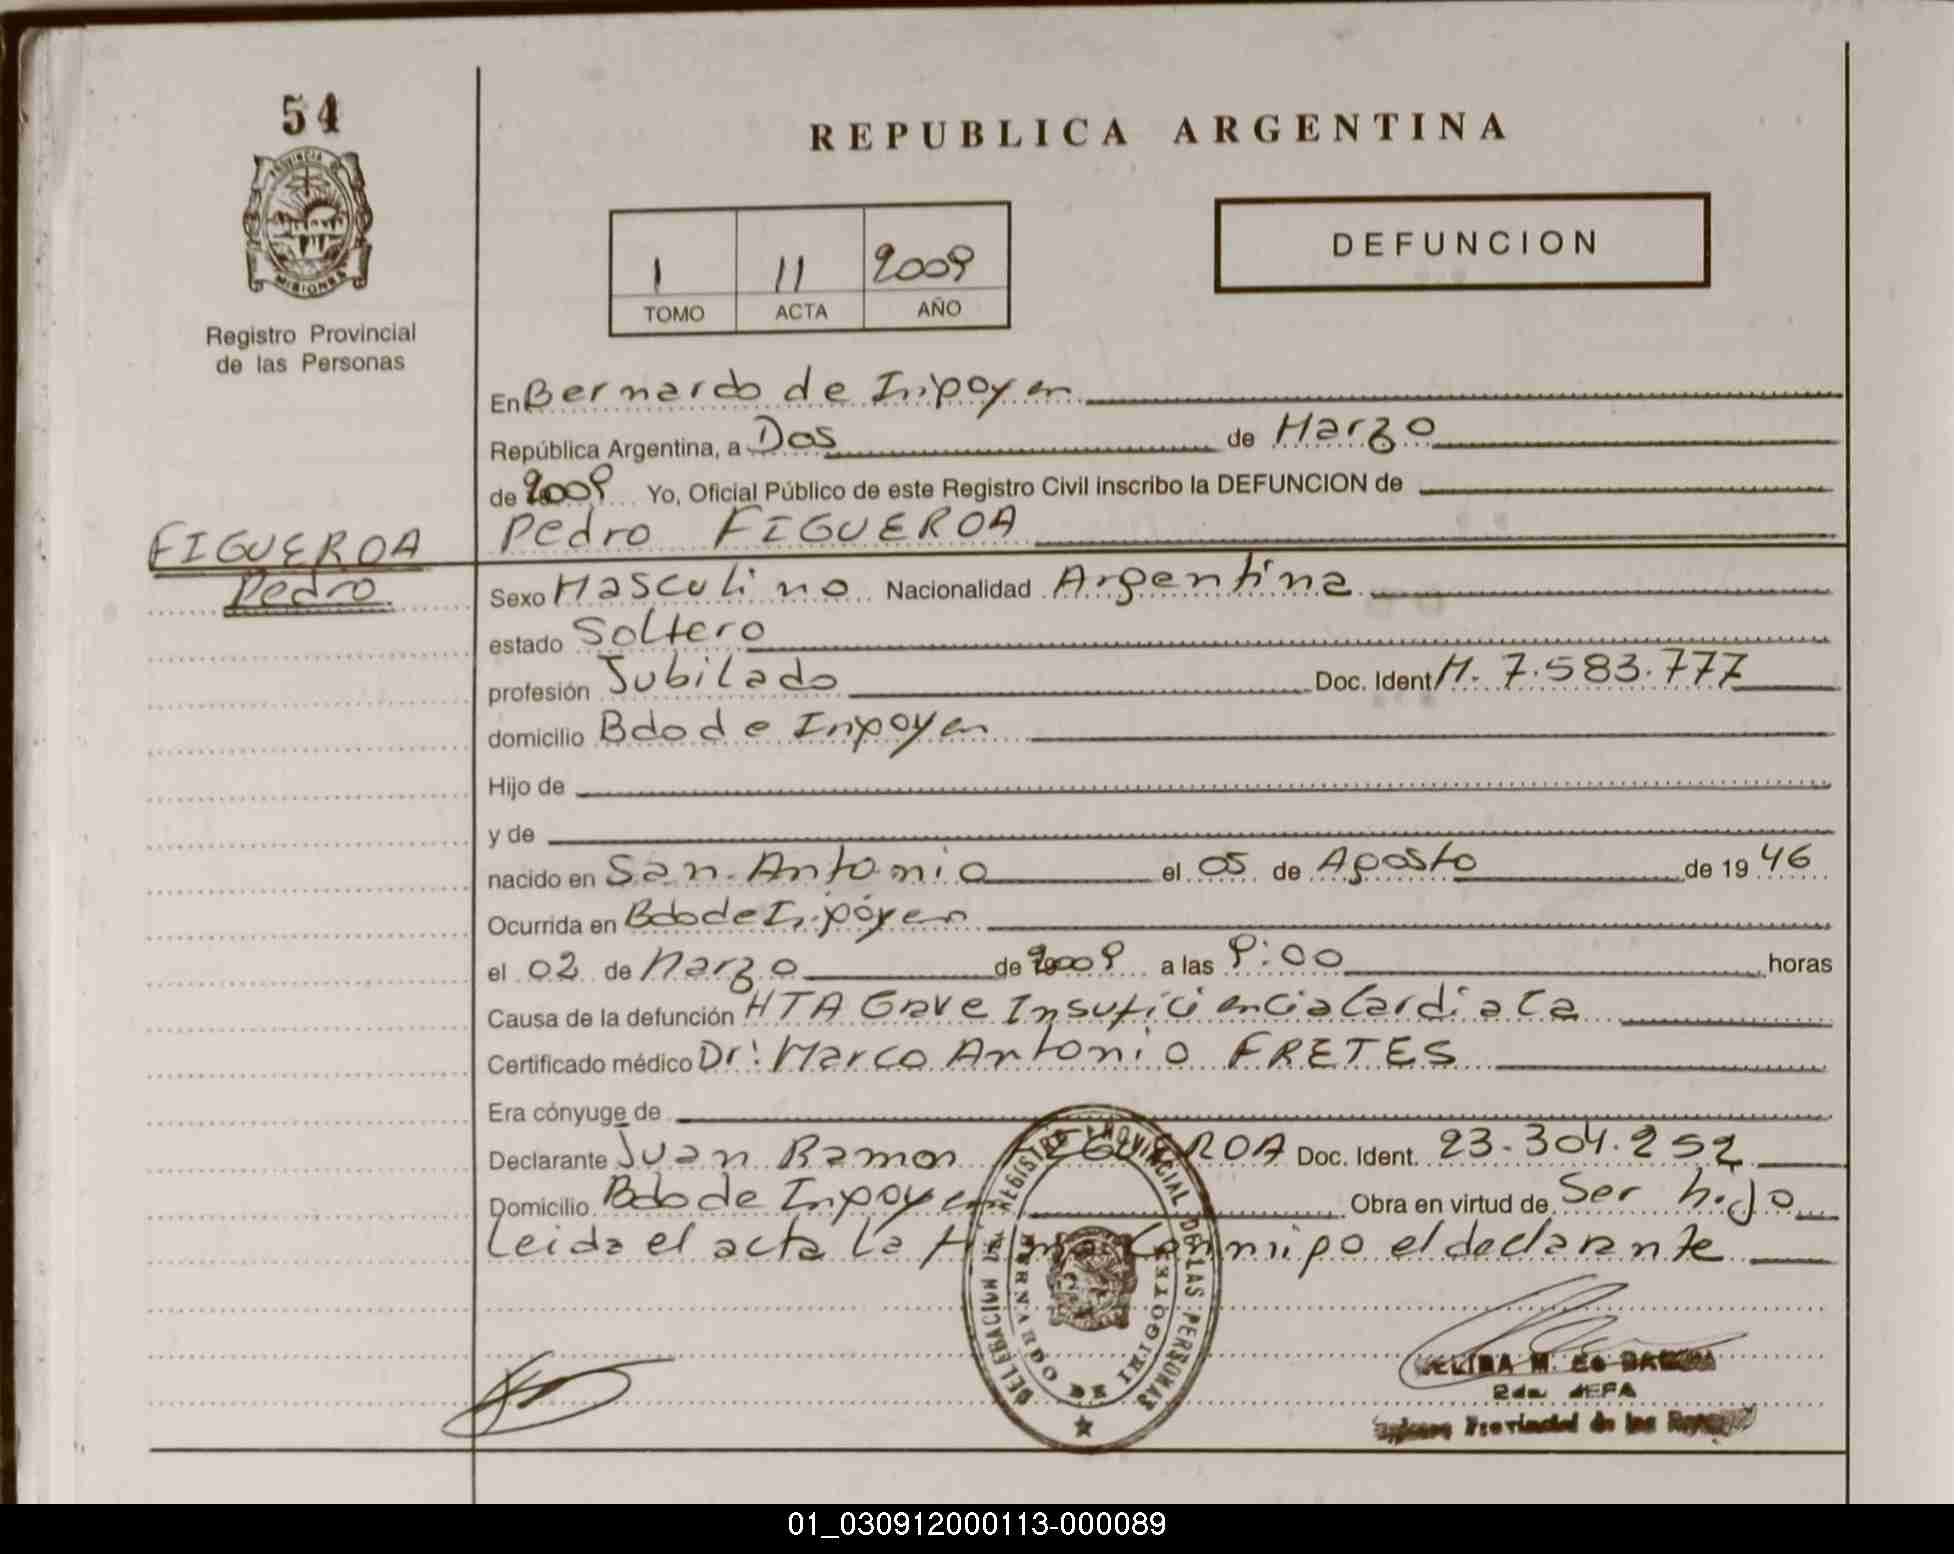 54
PROVINCIA DE
MISIONES
Registro Provincial
de las Personas
REPUBLICA ARGENTINA
1 11 2009
TOMO ACTA AÑO
DEFUNCION
En Bernardo de Irigoyen
República Argentina, a Dos de Marzo
de 2009 Yo, Oficial Público de este Registro Civil inscribo la DEFUNCION de
Pedro FIGUEROA
FIGUEROA
Pedro
Sexo Masculino Nacionalidad Argentina
estado Soltero
profesión Jubilado Doc. Ident M. 7.583.777
domicilio Bdo de Irigoyen
Hijo de
y de
nacido en San Antonio el 05 de Agosto de 1946
Ocurrida en Bdo de Irigoyen
el 02 de Marzo de 2009 a las 9:00 horas
Causa de la defunción HTA Grave Insuficiencia Cardiaca
Certificado médico Dr: Marco Antonio FRETES
Era cónyuge de
Declarante Juan Ramon FIGUEROA Doc. Ident. 23.304.252
Domicilio Bdo de Irigoyen Obra en virtud de Ser hijo
Leida el acta la firma Conmigo el declarante
DELEGACION DEL REGISTRO PROVINCIAL DE LAS PERSONAS
BERNARDO DE IRIGOYEN
M. de
2da JEFA
Provincial de las
01_030912000113-000089